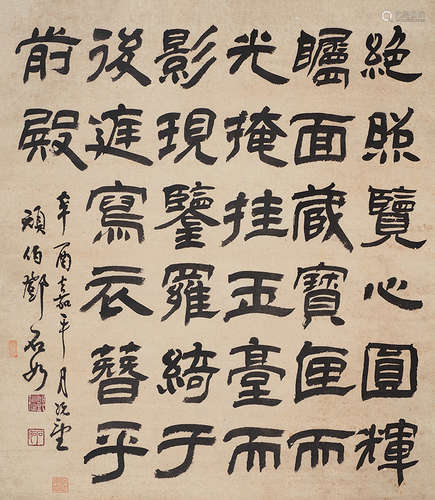 絶照覽心圓輝
矚面藏寶匣而
光掩挂玉臺而
影現鑒羅綺于
後庭寫衣簪乎
前殿
辛酉嘉平月既望
頑伯鄧石如